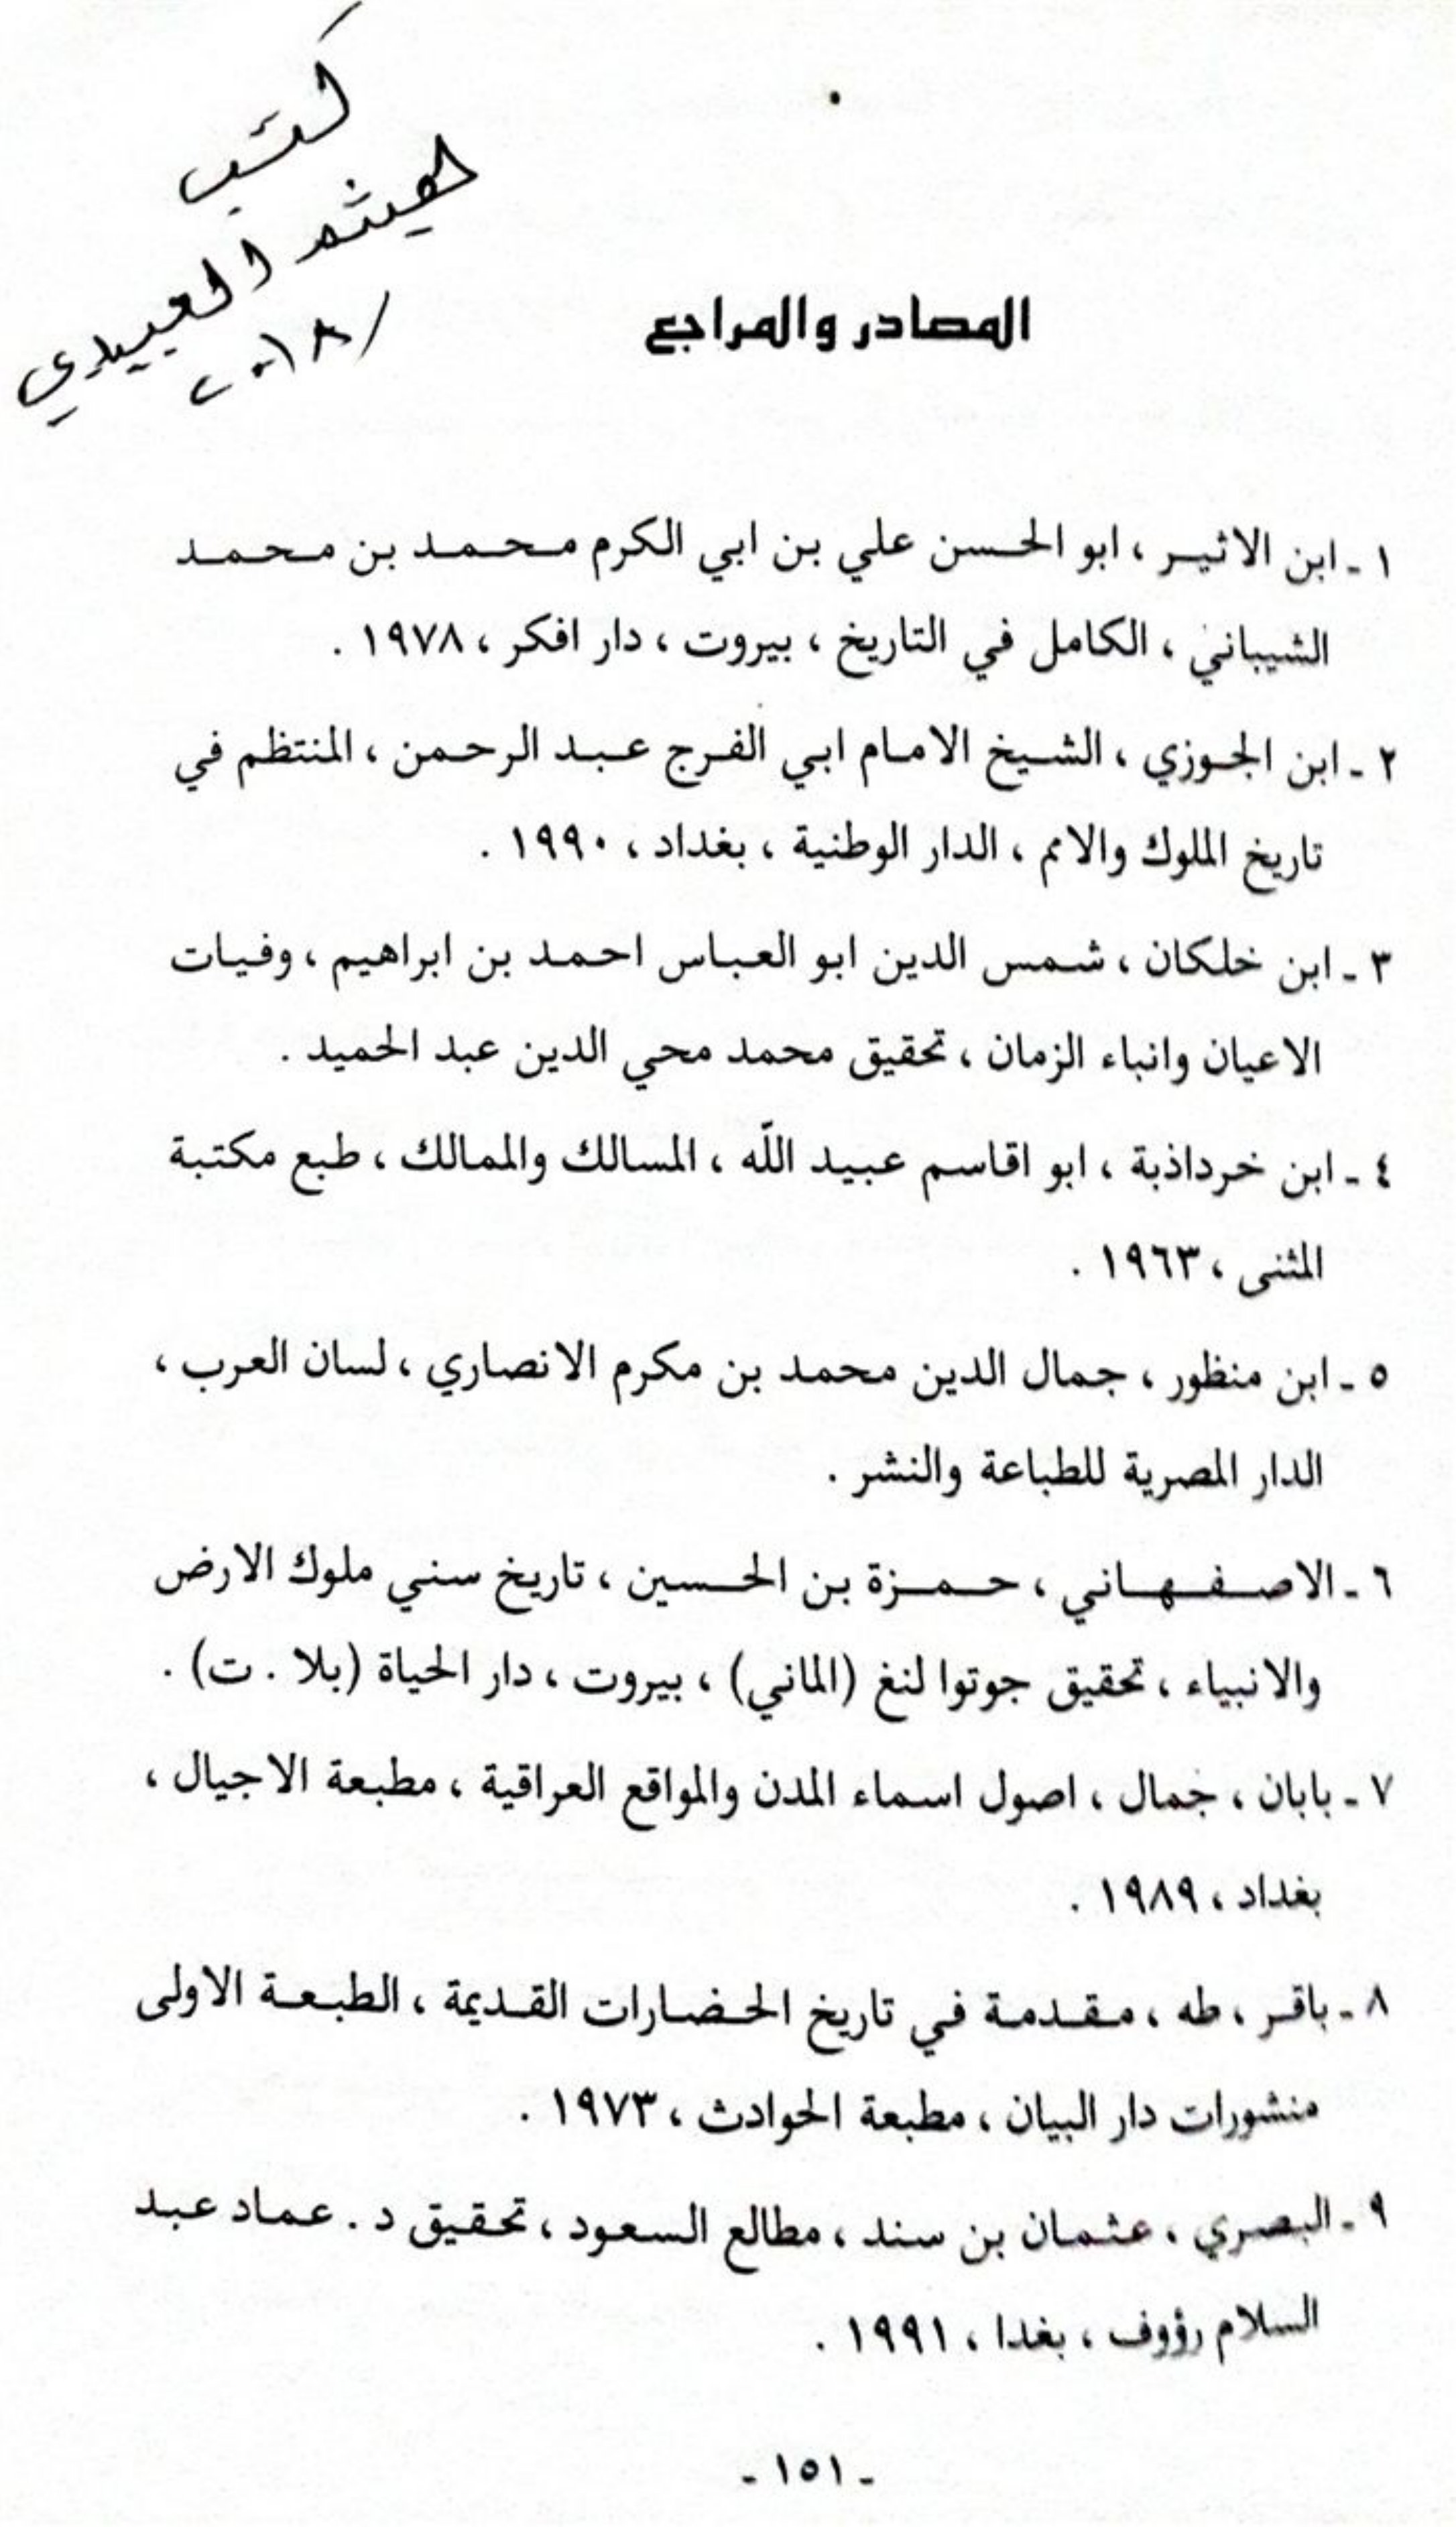 كتب
هيثم العبيدي
٢٠١٨/
المصادر والمراجع
١ ـ ابن الاثير ، ابو الحسن علي بن ابي الكرم محمد بن محمد
الشيباني ، الكامل في التاريخ ، بيروت ، دار افكر ، ١٩٧٨ .
٢ ـ ابن الجوزي ، الشيخ الامام ابي الفرج عبد الرحمن ، المنتظم في
تاريخ الملوك والامم ، الدار الوطنية ، بغداد ، ١٩٩٠ .
٣ ـ ابن خلكان ، شمس الدين ابو العباس احمد بن ابراهيم ، وفيات
الاعيان وانباء الزمان ، تحقيق محمد محي الدين عبد الحميد .
٤ ـ ابن خرداذبة ، ابو اقاسم عبيد اللّه ، المسالك والممالك ، طبع مكتبة
المثنى ، ١٩٦٣ .
٥ ـ ابن منظور ، جمال الدين محمد بن مكرم الانصاري ، لسان العرب ،
الدار المصرية للطباعة والنشر .
٦ ـ الاصفهاني ، حمزة بن الحسين ، تاريخ سني ملوك الارض
والانبياء ، تحقيق جوتوا لنغ (الماني) ، بيروت ، دار الحياة (بلا . ت) .
٧ ـ بابان ، جمال ، اصول اسماء المدن والمواقع العراقية ، مطبعة الاجيال ،
بغداد ، ١٩٨٩ .
٨ ـ باقر ، طه ، مقدمة في تاريخ الحضارات القديمة ، الطبعة الاولى
منشورات دار البيان ، مطبعة الحوادث ، ١٩٧٣ .
٩ ـ البصري ، عثمان بن سند ، مطالع السعود ، تحقيق د . عماد عبد
السلام رؤوف ، بغدا ، ١٩٩١ .
ـ ١٥١ ـ